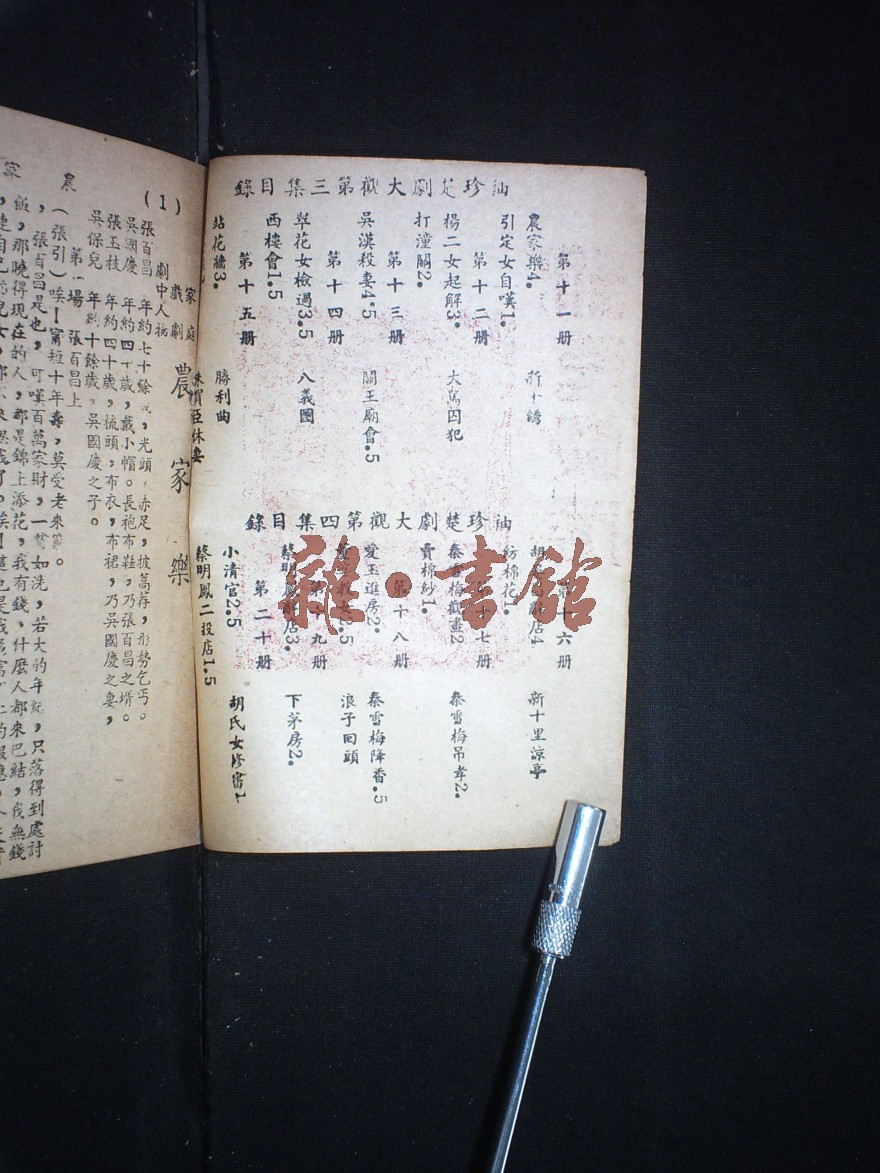 袖珍楚劇大觀第三集目錄
第十一册
農家樂4. 新十綉
引定女自嘆1.
第十二册
楊二女起解3. 大萬囚犯
打潼關2.
第十三册
吳漢殺妻4.5 關王廟會.5
第十四册
翠花女檢過3.5 八義圖
西樓會1.5
第十五册
站花墻3. 勝利曲
休妻
袖珍楚劇大觀第四集目錄
第十六册
店4 新十里涼亭
紡棉花1.
第十七册
秦雪梅觀畫2 秦雪梅吊孝2.
賣棉紗1.
第十八册
愛玉進房2. 秦雪梅降香.5
女2.5 浪子回頭
第十九册
蔡明鳳店3. 下茅房2.
第二十册
小清官2.5 胡氏女修書1.
蔡明鳳二投店1.5
雜·書館
(1)
家庭戲劇 農家樂
劇中人物
張百昌 年約七十餘歲,光頭,赤足,披蒿荐,形勢乞丐。
吳國慶 年約四十歲,戴小帽。長袍布鞋,乃張百昌之壻。
張玉枝 年約四十歲,梳頭,布衣,布裙,乃吳國慶之妻,
吳保兒 年約十餘歲,吳國慶之子。
第一場 張百昌上
(張引)唉!甯短十年壽,莫受老來窮。
,張百昌是也,可嘆百萬家財,一貧如洗,若大的年紀,只落得到處討
飯,那曉得現在的人,都是錦上添花,我有錢,什麼人都來巴結,我無錢
農
家